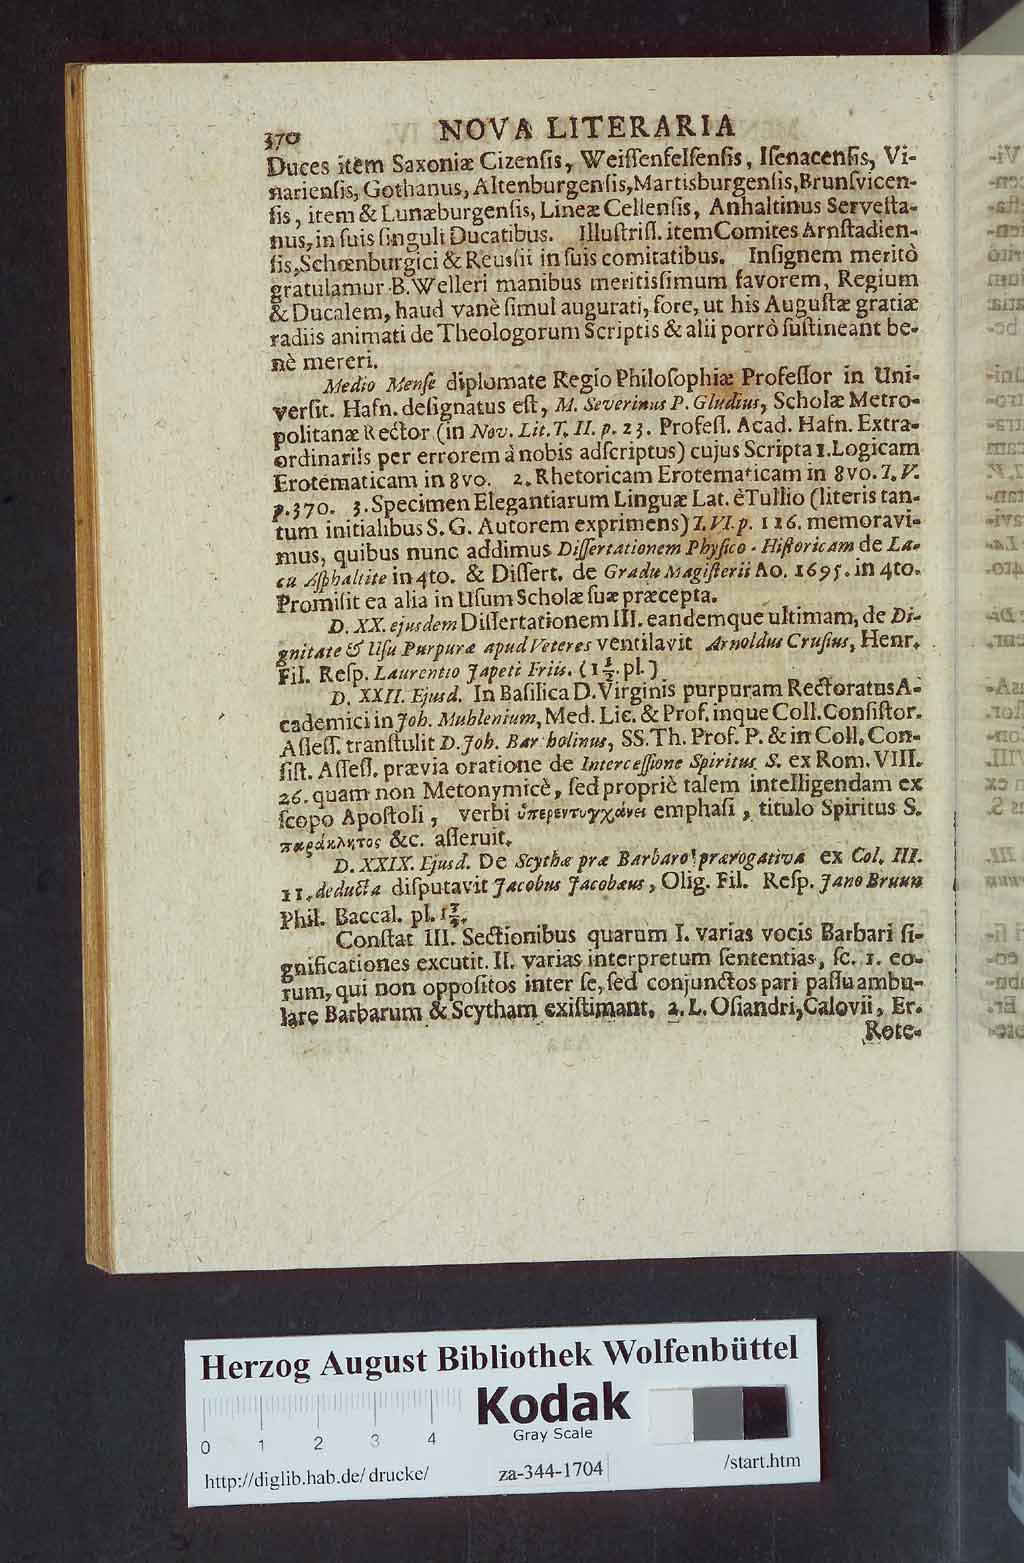 370 NOVA LITERARIA
Duces item Saxoniæ Cizenſis, Weiſſenfelſenſis, Iſenacenſis, Vi-
narienſis, Gothanus, Altenburgenſis, Martisburgenſis, Brunſvicen-
ſis, item & Lunæburgenſis, Lineæ Cellenſis, Anhaltinus Serveſta-
nus, in ſuis ſinguli Ducatibus. Illuſtriſſ. item Comites Arnſtadien-
ſis, Schœnburgici & Reusſii in ſuis comitatibus. Inſignem meritò
gratulamur B. Welleri manibus meritisſimum favorem, Regium
& Ducalem, haud vanè ſimul augurati, fore, ut his Auguſtæ gratiæ
radiis animati de Theologorum Scriptis & alii porrò ſuſtineant be-
nè mereri.
Medio Menſe diplomate Regio Philoſophiæ Profeſſor in Uni-
verſit. Hafn. deſignatus eſt, M. Severinus P. Gludius, Scholæ Metro-
politanæ Rector (in Nov. Lit. T. II. p. 23. Profeſſ. Acad. Hafn. Extra-
ordinariis per errorem à nobis adſcriptus) cujus Scripta 1. Logicam
Erotematicam in 8vo. 2. Rhetoricam Erotematicam in 8vo. T. V.
p. 370. 3. Specimen Elegantiarum Linguæ Lat. è Tullio (literis tan-
tum initialibus S. G. Autorem exprimens) T. VI. p. 126. memoravi-
mus, quibus nunc addimus Diſſertationem Phyſico-Hiſtoricam de La-
cu Aſphaltite in 4to. & Diſſert. de Gradu Magiſterii Ao. 1695. in 4to.
Promiſit ea alia in Uſum Scholæ ſuæ præcepta.
D. XX. ejusdem Diſſertationem III. eandemque ultimam, de Di-
gnitate & Uſu Purpuræ apud Veteres ventilavit Arnoldus Cruſius, Henr.
Fil. Reſp. Laurentio Japeti Friis. (1½. pl.)
D. XXII. Ejusd. In Baſilica D. Virginis purpuram Rectoratus A-
cademici in Joh. Muhlenium, Med. Lic. & Prof. inque Coll. Conſiſtor.
Aſſeſſ. tranſtulit D. Joh. Bartholinus, SS. Th. Prof. P. & in Coll. Con-
ſiſt. Aſſeſſ. prævia oratione de Interceſſione Spiritus S. ex Rom. VIII.
26. quam non Metonymicè, ſed propriè talem intelligendam ex
ſcopo Apoſtoli, verbi ὑπερεντυγχάνει emphaſi, titulo Spiritus S.
παράκλητος &c. aſſeruit.
D. XXIX. Ejusd. De Scythæ præ Barbaro prærogativa ex Col. III.
11. deducta diſputavit Jacobus Jacobæus, Olig. Fil. Reſp. Jano Bruun
Phil. Baccal. pl.
Conſtat III. Sectionibus quarum I. varias vocis Barbari ſi-
gnificationes excutit. II. varias interpretum ſententias, ſc. 1. eo-
rum, qui non oppoſitos inter ſe, ſed conjunctos pari paſſu ambu-
lare Barbarum & Scytham exiſtimant. 2. L. Oſiandri, Calovii, Er.
Rote-
Herzog August Bibliothek Wolfenbüttel
Kodak
Gray Scale
0 1 2 3 4
http://diglib.hab.de/drucke/ za-344-1704 /start.htm